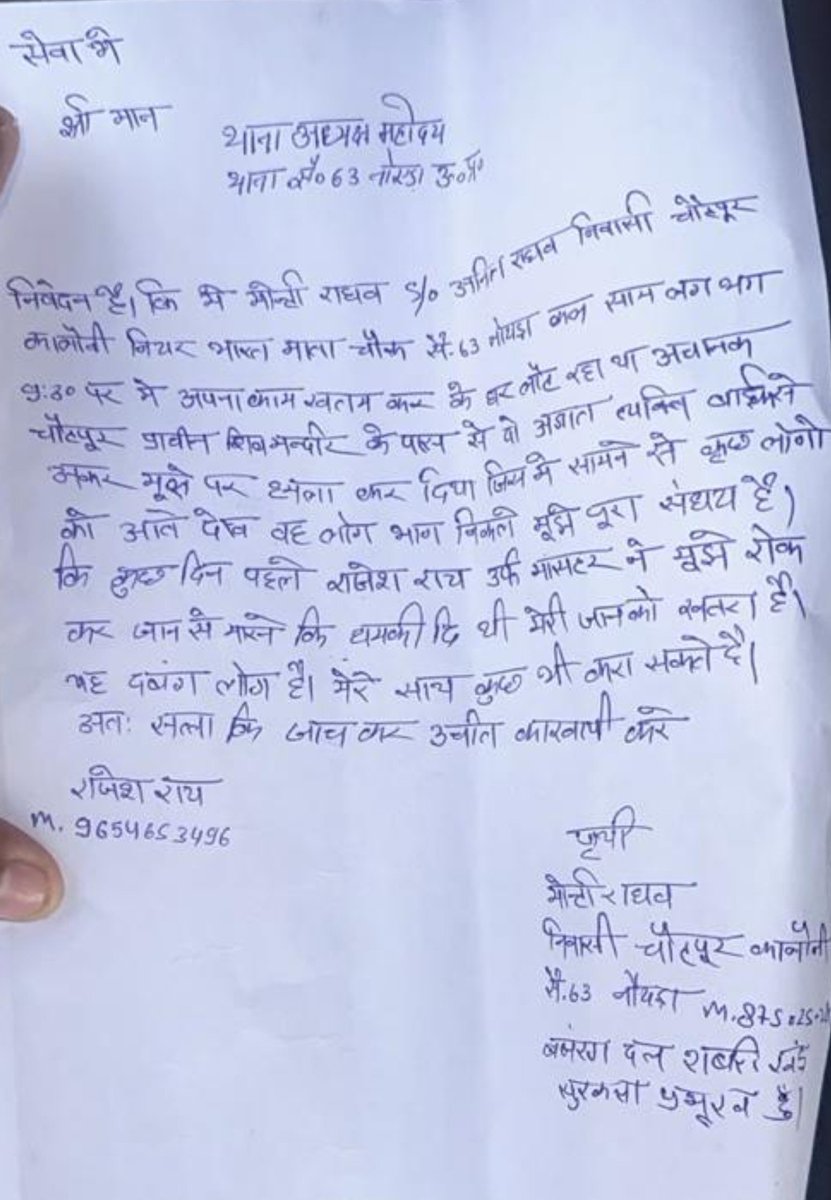 सेवा मे
श्री मान
थाना अध्यक्ष महोदय
थाना सै० 63 नोएडा उ०प्र०
निवेदन है। कि मे मोन्टी राघव S/o अनिल राघव निवासी चोटपूर
कालोनी नियर भारत माता चौक सै. 63 नोयडा कल साम लग भग
9:30 पर मे अपना काम खतम कर के घर लौट रहा था अचानक
चौटपूर प्राचीन शिव मन्दीर के पास से दो अज्ञात व्यक्ति
अकर मूझे पर हमला कर दिया जिस मे सामने से कुछ लोगो
को आते देख वह लोग भाग निकले मूझे पूरा संशय है।
कि कुछ दिन पहले राजेश राय उर्फ मासटर ने मूझे रोक
कर जान से मारने कि धमकी दि थी मेरी जान को खतरा है।
यह दबंग लोग है। मेरे साथ कुछ भी करा सकते है।
अतः कि जाच कर उचीत कारवायी करे
राजेश राय
M. 9654653496
मोन्टी राघव
निवासी चौटपूर कालोनी
सै. 63 नौयडा M. 875
बजरंग दल शबरी